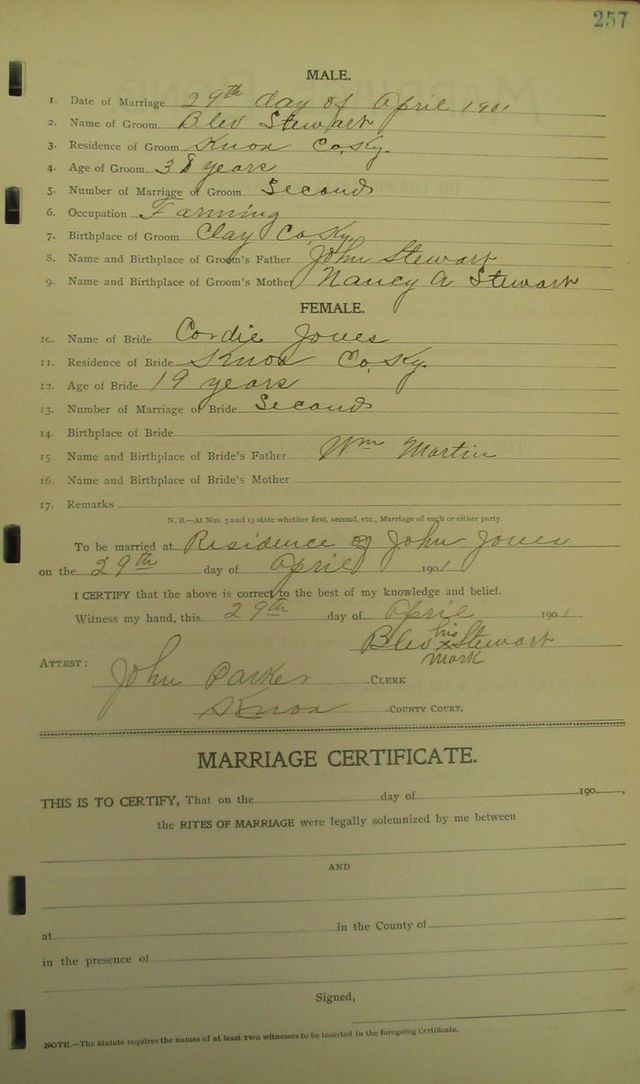 257
MALE.
1. Date of Marriage 29th day of April 1901
2. Name of Groom Blev Stewart
3. Residence of Groom Knox Co, Ky.
4. Age of Groom 38 years
5. Number of Marriage of Groom Second
6. Occupation Farming
7. Birthplace of Groom Clay Co, Ky.
8. Name and Birthplace of Groom's Father John Stewart
9. Name and Birthplace of Groom's Mother Nancy A Stewart
FEMALE.
10. Name of Bride Cordie Jones
11. Residence of Bride Knox Co, Ky.
12. Age of Bride 19 years
13. Number of Marriage of Bride Second
14. Birthplace of Bride
15. Name and Birthplace of Bride's Father Wm Martin
16. Name and Birthplace of Bride's Mother
17. Remarks
N. B.—At Nos. 5 and 13 state whether first, second, etc., Marriage of each or either party.
To be married at Residence of John Jones
on the 29th day of April 1901
I CERTIFY that the above is correct to the best of my knowledge and belief.
Witness my hand, this 29th day of April 1901
Blev his x Stewart
mark
ATTEST:
John Parker CLERK
Knox COUNTY COURT.
MARRIAGE CERTIFICATE.
THIS IS TO CERTIFY, That on the day of 190 ,
the RITES OF MARRIAGE were legally solemnized by me between
AND
at in the County of
in the presence of
Signed,
NOTE.—The Statute requires the names of at least TWO witnesses to be inserted in the foregoing Certificate.